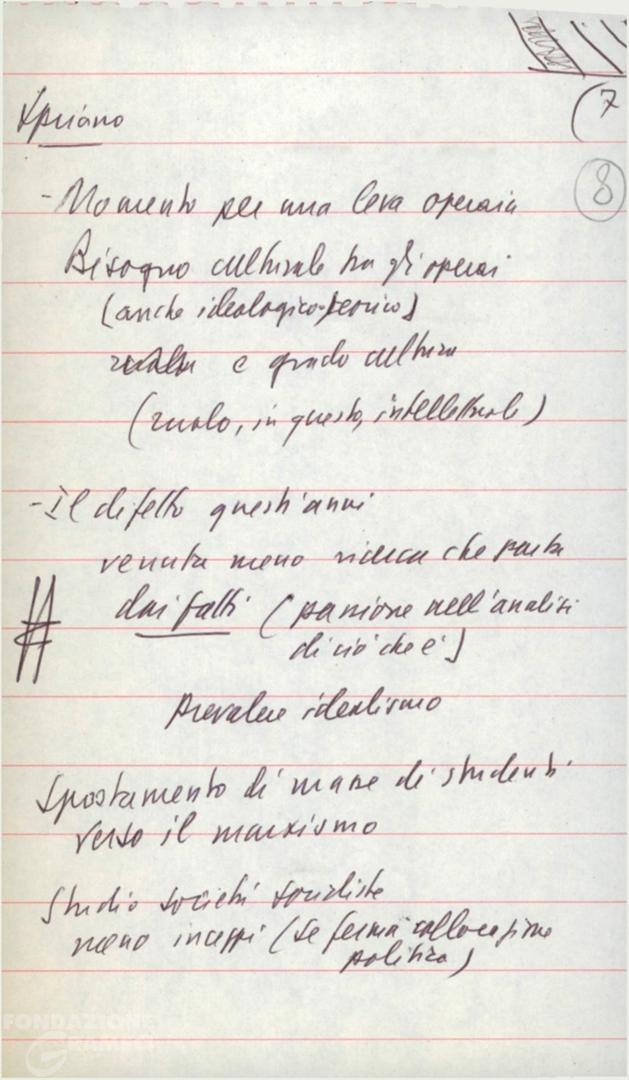 (7
8
Spriano
- Momento per una leva operaia
Bisogno culturale tra gli operai
(anche ideologico-teorico)
e grado cultura
(ruolo, in questo, intellettuale)
- Il difetto quest'anni
venuta meno ricerca che parta
dai fatti (passione nell'analisi
di ciò che è)
Prevalere idealismo
Spostamento di masse di studenti
verso il marxismo
Studio società socialiste
meno inceppi (se ferma collocazione
politica)
FONDAZIONE
GRAMSCI